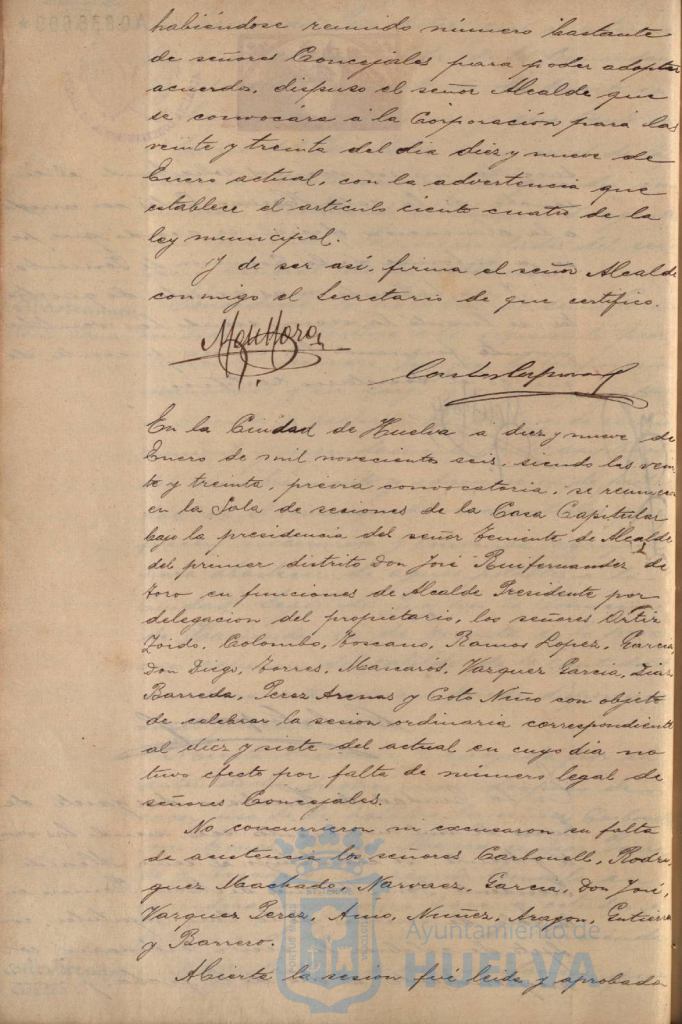 habiéndose reunido número bastante
de señores Concejales para poder adoptar
acuerdo, dispuso el señor Alcalde que
se convocára á la Corporación para las
veinte y treinta del dia diez y nueve de
Enero actual, con la advertencia que
establece el artículo ciento cuatro de la
ley municipal.
Y de ser así, firma el señor Alcalde
conmigo el Secretario de que certifico.
En la Ciudad de Huelva a diez y nueve de
Enero de mil novecientos seis, siendo las vein
te y treinta, previa convocatoria, se reunieron
en la Sala de sesiones de la Casa Capitular
bajo la presidencia del señor Teniente de Alcalde
del primer distrito Don José Ruifernandez de
Toro en funciones de Alcalde Presidente por
delegacion del propietario, los señores Ortiz
Zoido, Colombo, Toscano, Ramos Lopez, Garcia,
Don Diego, Torres, Mascarós, Vazquez Garcia, Diaz
Barreda, Perez Arenas y Coto Niño con objeto
de celebrar la sesion ordinaria correspondiente
al diez y siete del actual en cuyo dia no
tuvo efecto por falta de número legal de
señores Concejales.
No concurrieron ni excusaron su falta
de asistencia los señores Carbonell, Rodri
guez Machado, Narvaez, Garcia, Don José,
Vazquez Perez, Amo, Nuñez, Aragon, Gutierrez
y Barrero.
Abierta la sesion fué leida y aprobada
Ayuntamiento de
HUELVA